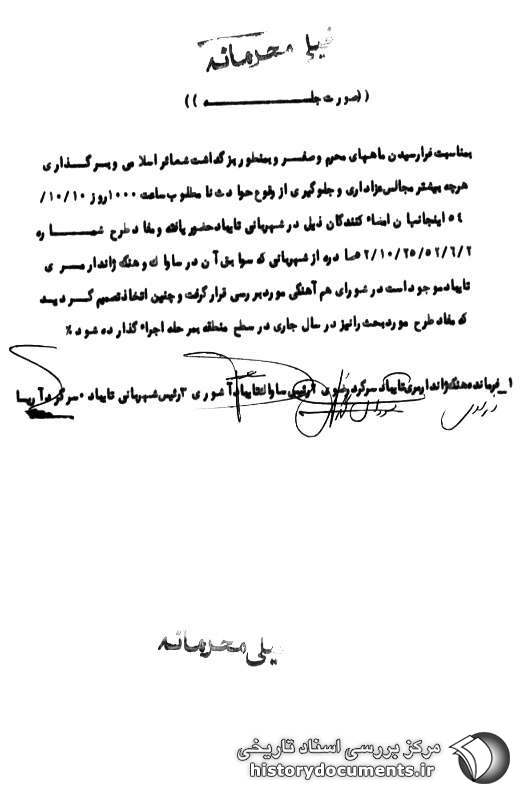 خیلی محرمانه
((صورت جلسه))
بمناسبت فرارسیدن ماههای محرم و صفر و بمنظور بزرگداشت شعائر اسلامی و برگذاری
هرچه بیشتر مجالس عزاداری و جلوگیری از وقوع حوادث نامطلوب ساعت ۱۰۰۰ روز ۱۰/۱۰/
۵۴ اینجانبان امضاء کنندگان ذیل در شهربانی تایباد حضور یافته و مفاد طرح شماره
۲/۱۰/۲۵/۵۲/۶/۲ صادره از شهربانی که سوابق آن در ساواک و هنگ ژاندارمری
تایباد موجود است در شورای هم آهنگی مورد بررسی قرار گرفت و چنین اتخاذ تصمیم گردید
که مفاد طرح مورد بحث را نیز در سال جاری در سطح منطقه بمرحله اجراء گذارده شود %
۱_ فرمانده هنگ ژاندارمری تایباد سرگرد رضوی ۲ رئیس ساواک تایباد آشوری ۳ رئیس شهربانی تایباد ۰ سرگرد آریسا
خیلی محرمانه
مرکز بررسی اسناد تاریخی
historydocuments.ir